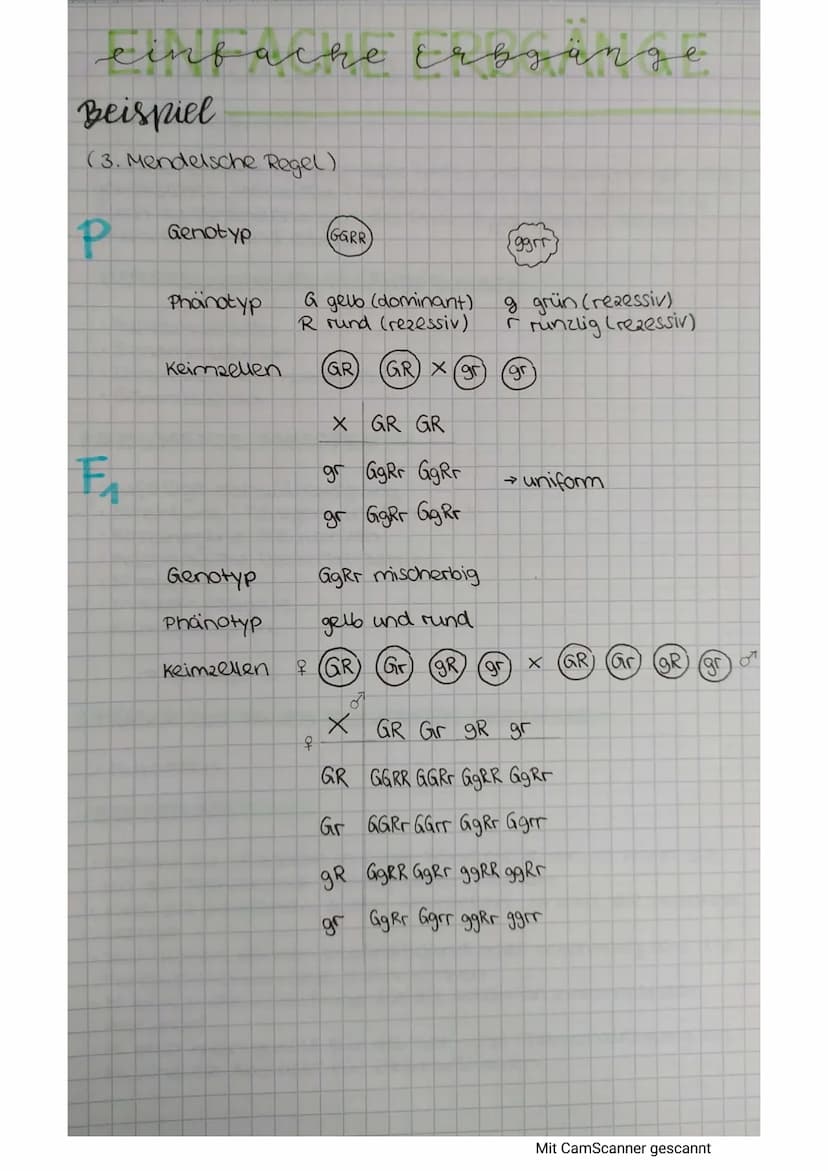 EINFACHE ERBGÄNGE
einfache Erbgänge
Beispiel
(3. Mendelsche Regel)
P Genotyp GGRR ggrr
Phänotyp G gelb (dominant) g grün (rezessiv)
R rund (rezessiv) r runzlig (rezessiv)
Keimzellen GR GR × gr gr
× GR GR
F1 gr GgRr GgRr → uniform
gr GgRr GgRr
Genotyp GgRr mischerbig
Phänotyp gelb und rund
Keimzellen ♀ GR Gr gR gr × GR Gr gR gr ♂
♀ × ♂ GR Gr gR gr
GR GGRR GGRr GgRR GgRr
Gr GGRr GGrr GgRr Ggrr
gR GgRR GgRr ggRR ggRr
gr GgRr Ggrr ggRr ggrr
Mit CamScanner gescannt